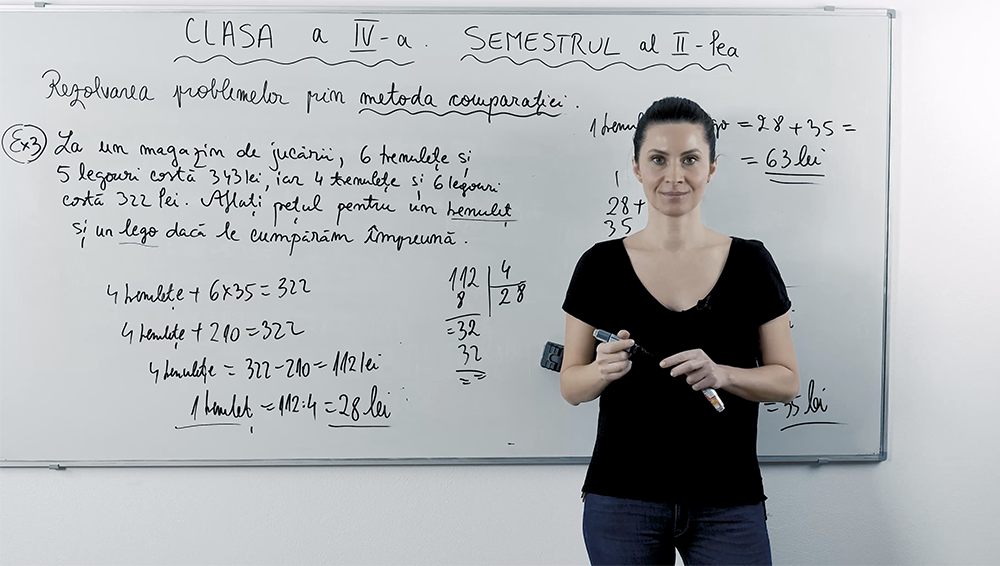 CLASA a IV-a. SEMESTRUL al II-lea
Rezolvarea problemelor prin metoda comparației.
Ex3 La un magazin de jucării, 6 trenulețe și
5 legouri costă 343 lei, iar 4 trenulețe și 6 legouri
costă 322 lei. Aflați prețul pentru un trenuleț
și un lego dacă le cumpărăm împreună.
4 trenulețe + 6x35 = 322
4 trenulețe + 210 = 322
4 trenulețe = 322 - 210 = 112 lei
1 trenuleț = 112:4 = 28 lei
112 4
8 28
=32
32
==
= 28 + 35 =
= 63 lei
1
28 +
35
= 35 lei